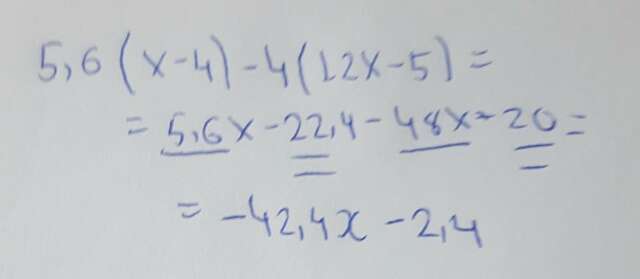 5,6(x-4)-4(12x-5)=
=5,6x-22,4-48x-20=
=-42,4x-2,4